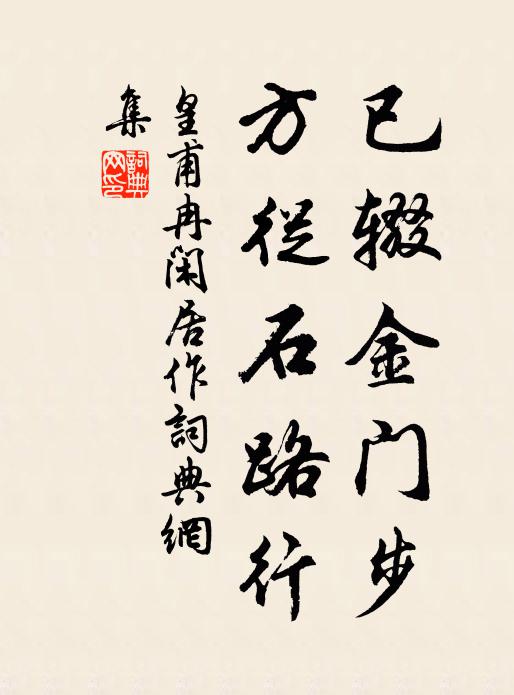 已辍金门步
方从石路行
皇甫冉闲居作詞典網
集
詞典
网印